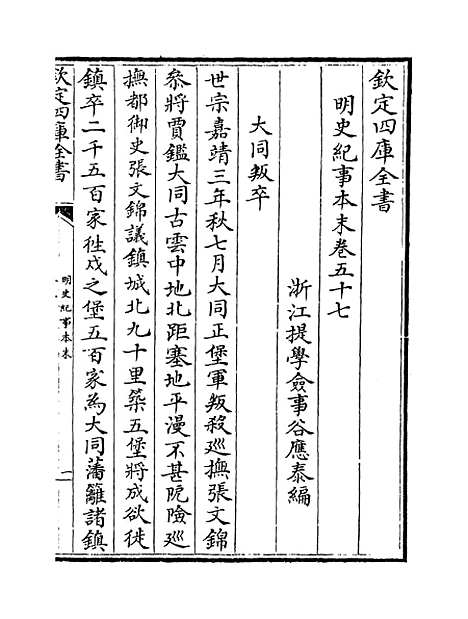 欽定四庫全書
明史紀事本末卷五十七
浙江提學僉事谷應泰編
大同叛卒
世宗嘉靖三年秋七月大同五堡軍叛殺巡撫張文錦
叅將賈鑑大同古雲中地北距塞地平漫不甚阨險巡
撫都御史張文錦議鎮城北九十里築五堡將成欲徙
鎮卒二千五百家徃戍之堡五百家為大同藩籬諸鎮
欽定四庫全書
明史紀事本末